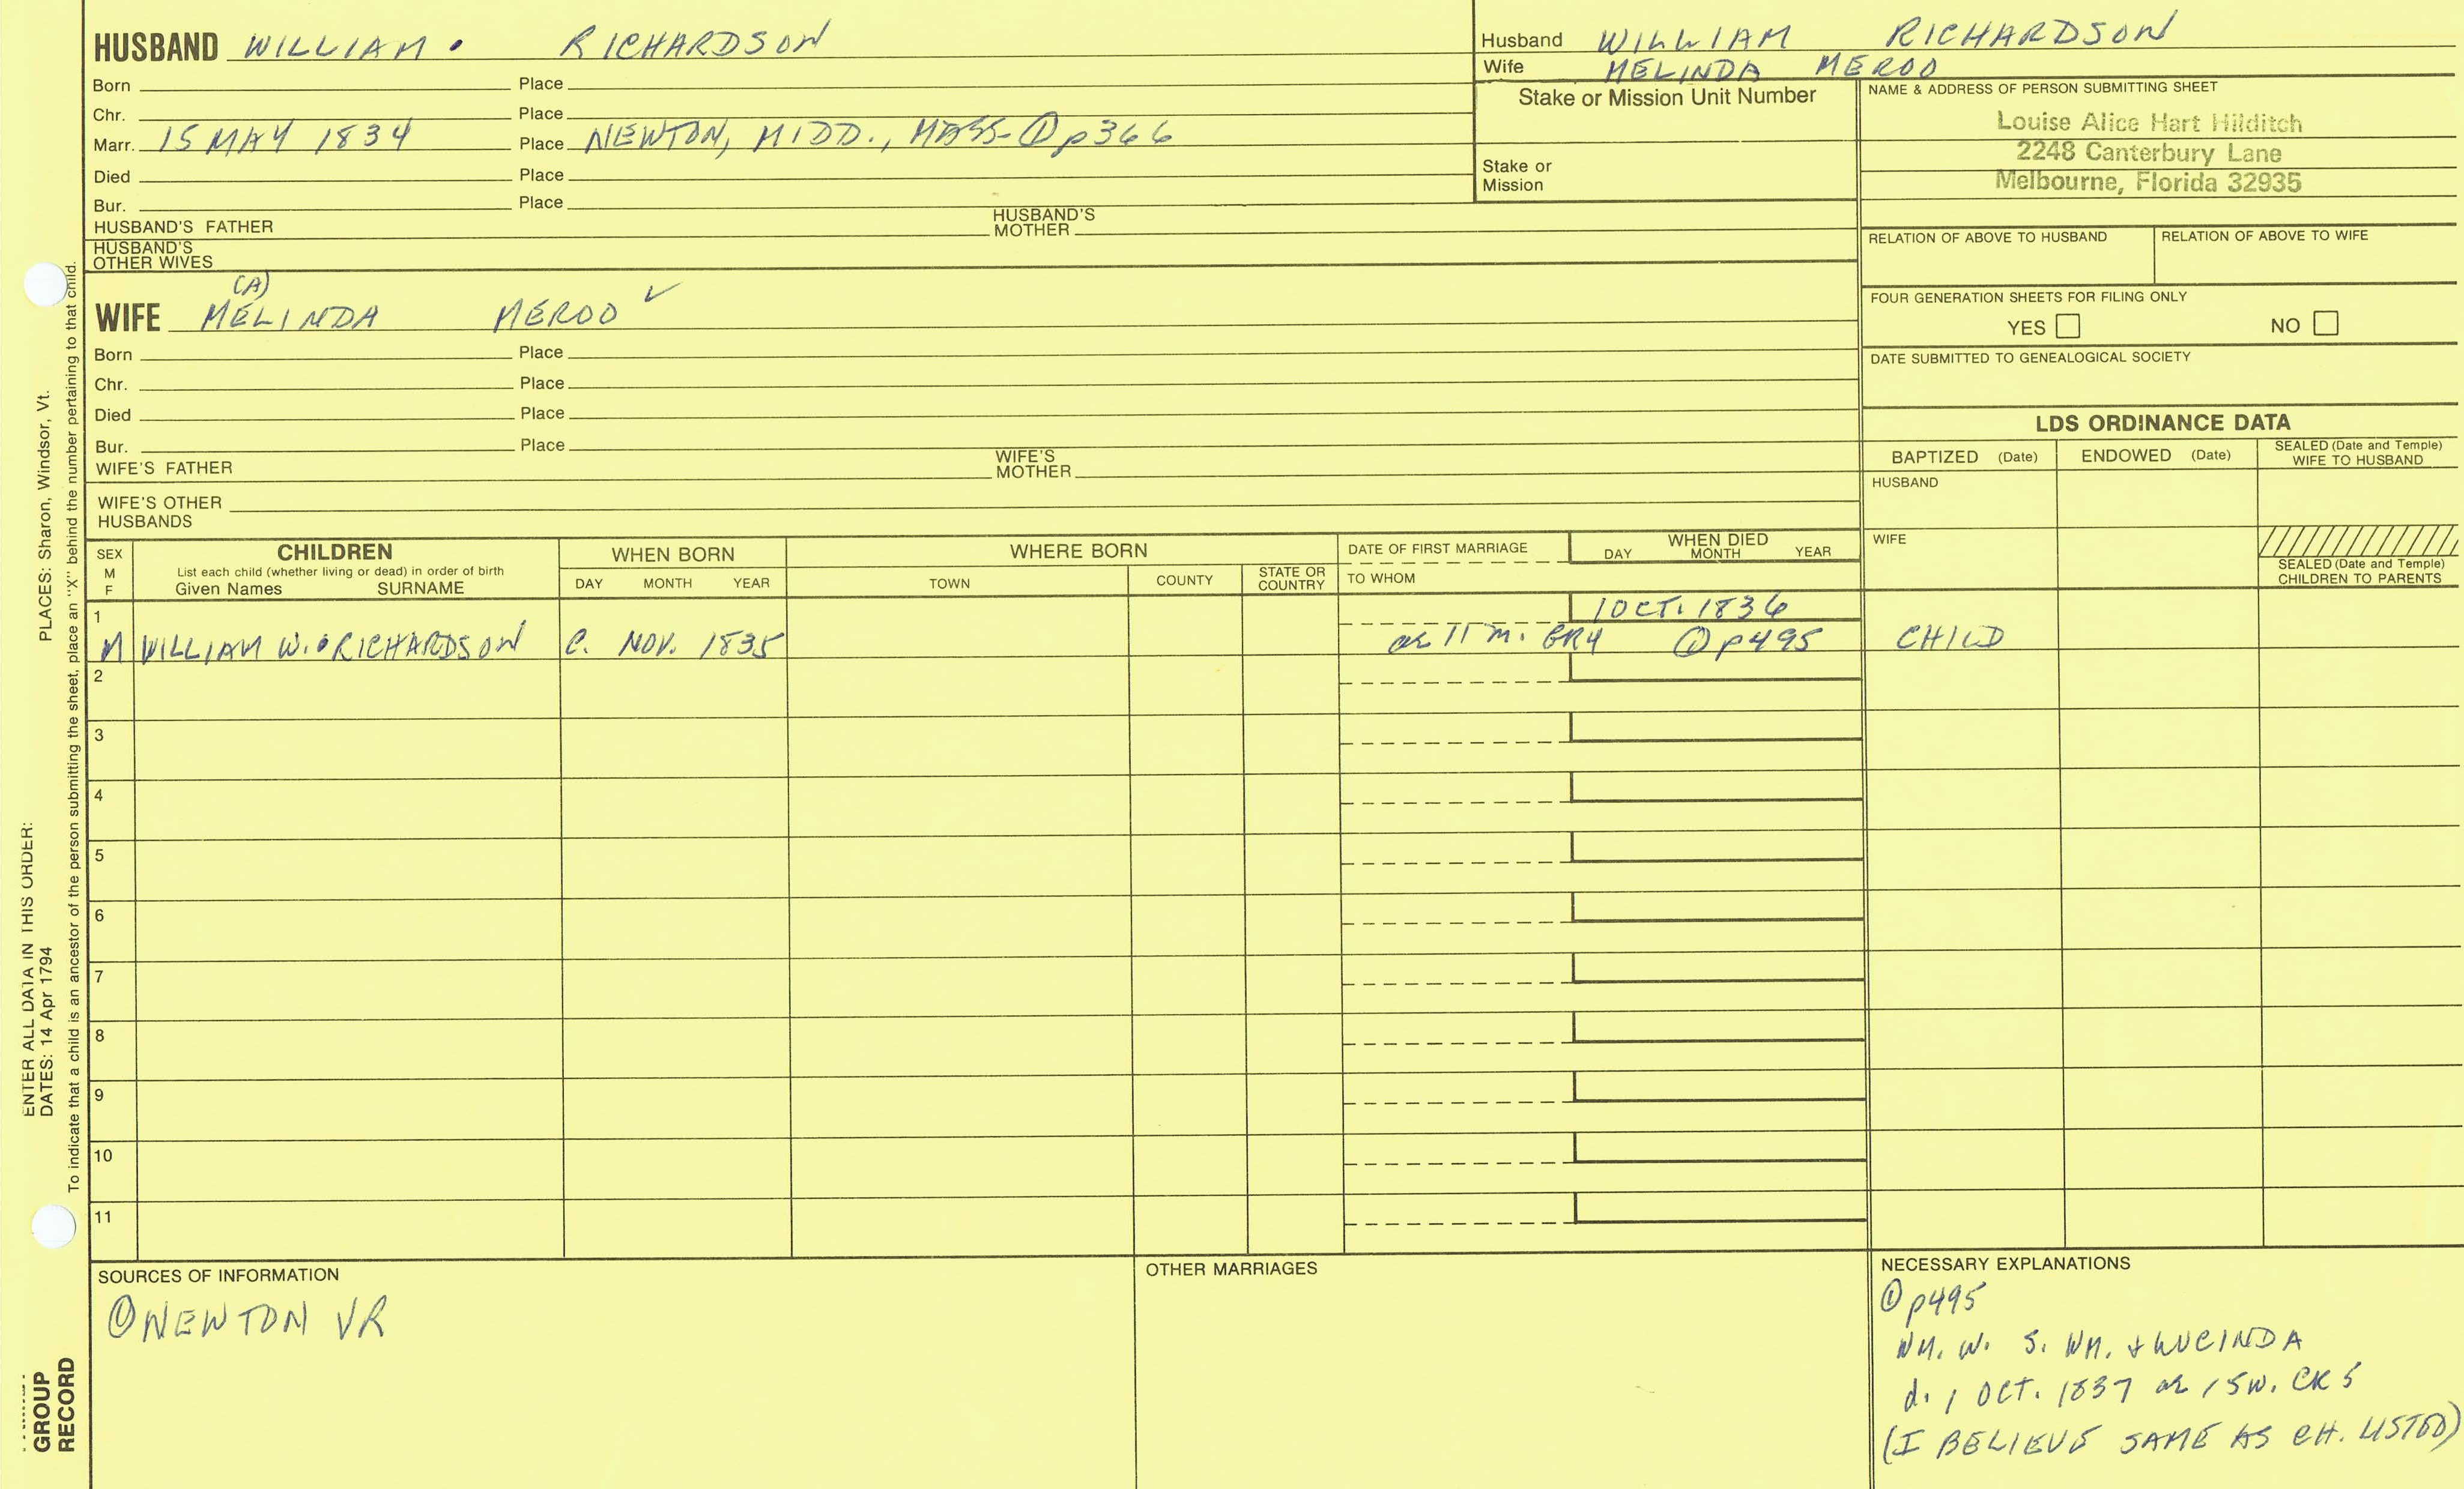 HUSBAND WILLIAM • RICHARDSON
Born Place
Chr. Place
Marr. 15 MAY 1834 Place NEWTON, MIDD., MASS- ① p366
Died Place
Bur. Place
HUSBAND'S FATHER HUSBAND'S MOTHER
HUSBAND'S OTHER WIVES
(A)
WIFE MELINDA MEROD ✓
Born Place
Chr. Place
Died Place
Bur. Place
WIFE'S FATHER WIFE'S MOTHER
WIFE'S OTHER HUSBANDS
Husband WILLIAM RICHARDSON
Wife MELINDA MEROD
Stake or Mission Unit Number
Stake or
Mission
NAME & ADDRESS OF PERSON SUBMITTING SHEET
Louise Alice Hart Hilditch
2248 Canterbury Lane
Melbourne, Florida 32935
RELATION OF ABOVE TO HUSBAND RELATION OF ABOVE TO WIFE
FOUR GENERATION SHEETS FOR FILING ONLY
YES NO
DATE SUBMITTED TO GENEALOGICAL SOCIETY
LDS ORDINANCE DATA
BAPTIZED (Date) ENDOWED (Date) SEALED (Date and Temple) WIFE TO HUSBAND
HUSBAND
WIFE
SEALED (Date and Temple)
CHILDREN TO PARENTS
SEX M F
CHILDREN
List each child (whether living or dead) in order of birth
Given Names SURNAME
WHEN BORN
DAY MONTH YEAR
WHERE BORN
TOWN COUNTY STATE OR COUNTRY
DATE OF FIRST MARRIAGE
TO WHOM
WHEN DIED
DAY MONTH YEAR
1 1 OCT. 1836
M WILLIAM W. • RICHARDSON C. NOV. 1835 ae 11 m. GR4 ① p495 CHILD
2
3
4
5
6
7
8
9
10
11
SOURCES OF INFORMATION
① NEWTON VR
OTHER MARRIAGES
NECESSARY EXPLANATIONS
① p495
WM. W. S. WM. + LUCINDA
d. 1 OCT. 1837 ae 15w. CR5
(I BELIEVE SAME AS CH. LISTED)
ENTER ALL DATA IN THIS ORDER:
DATES: 14 Apr 1794 PLACES: Sharon, Windsor, Vt.
To indicate that a child is an ancestor of the person submitting the sheet, place an "X" behind the number pertaining to that child.
GROUP
RECORD